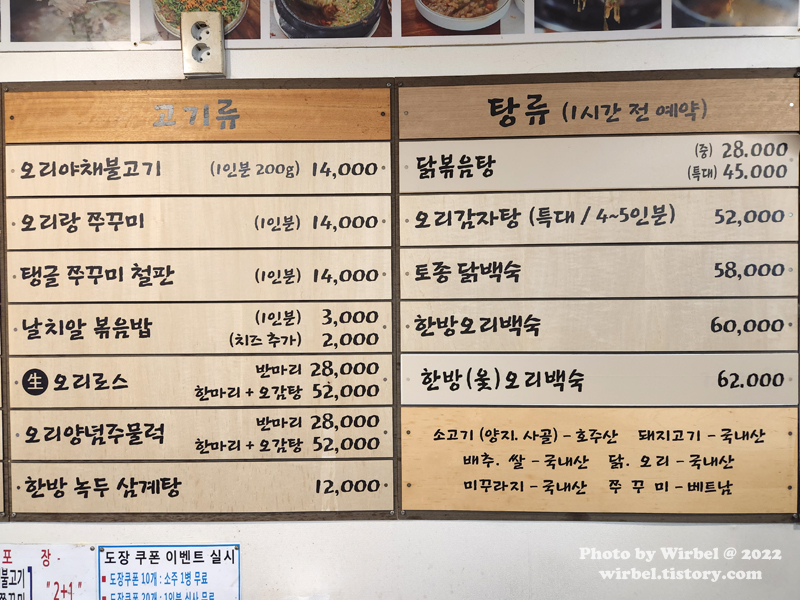 고기류
오리야채불고기 (1인분 200g) 14,000
오리랑 쭈꾸미 (1인분) 14,000
탱글 쭈꾸미 철판 (1인분) 14,000
날치알 볶음밥 (1인분) 3,000
(치즈 추가) 2,000
生 오리로스 반마리 28,000
한마리 + 오감탕 52,000
오리양념주물럭 반마리 28,000
한마리 + 오감탕 52,000
한방 녹두 삼계탕 12,000
탕류 (1시간 전 예약)
닭볶음탕 (중) 28.000
(특대) 45.000
오리감자탕 (특대 / 4~5인분) 52,000
토종 닭백숙 58,000
한방오리백숙 60,000
한방(옻)오리백숙 62.000
소고기 (양지. 사골) - 호주산 돼지고기 - 국내산
배추. 쌀 - 국내산 닭. 오리 - 국내산
미꾸라지 - 국내산 쭈 꾸 미 - 베트남
포 장
불고기
"2+1"
도장 쿠폰 이벤트 실시
도장쿠폰 10개 : 소주 1병 무료
도장쿠폰 20개 : 1인분 식사 무료
Photo by Wirbel @ 2022
wirbel.tistory.com